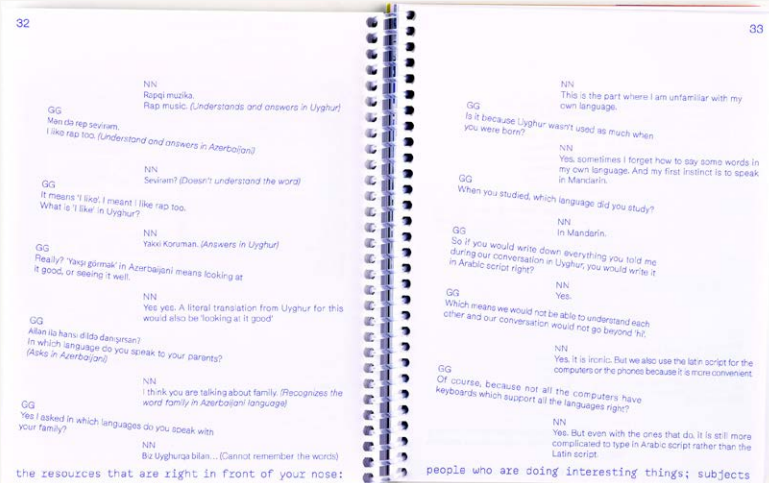 32
NN
Rəpqi muzika.
Rap music. (Understands and answers in Uyghur)
GG
Mən də rep sevirəm.
I like rap too. (Understand and answers in Azerbaijani)
NN
Sevirəm? (Doesn't understand the word)
GG
It means 'I like'. I meant I like rap too.
What is 'I like' in Uyghur?
NN
Yaxxi Koruman. (Answers in Uyghur)
GG
Really? 'Yaxşı görmək' in Azerbaijani means looking at
it good, or seeing it well.
NN
Yes yes. A literal translation from Uyghur for this
would also be 'looking at it good'
GG
Ailən ilə hansı dildə danışırsan?
In which language do you speak to your parents?
(Asks in Azerbaijani)
NN
I think you are talking about family. (Recognizes the
word family in Azerbaijani language)
GG
Yes I asked in which languages do you speak with
your family?
NN
Biz Uyghurqa bilan... (Cannot remember the words)
the resources that are right in front of your nose:
33
NN
This is the part where I am unfamiliar with my
own language.
GG
Is it because Uyghur wasn't used as much when
you were born?
NN
Yes, sometimes I forget how to say some words in
my own language. And my first instinct is to speak
in Mandarin.
GG
When you studied, which language did you study?
NN
In Mandarin.
GG
So if you would write down everything you told me
during our conversation in Uyghur, you would write it
in Arabic script right?
NN
Yes.
GG
Which means we would not be able to understand each
other and our conversation would not go beyond 'hi'.
NN
Yes, it is ironic. But we also use the latin script for the
computers or the phones because it is more convenient.
GG
Of course, because not all the computers have
keyboards which support all the languages right?
NN
Yes. But even with the ones that do, it is still more
complicated to type in Arabic script rather than the
Latin script.
people who are doing interesting things; subjects